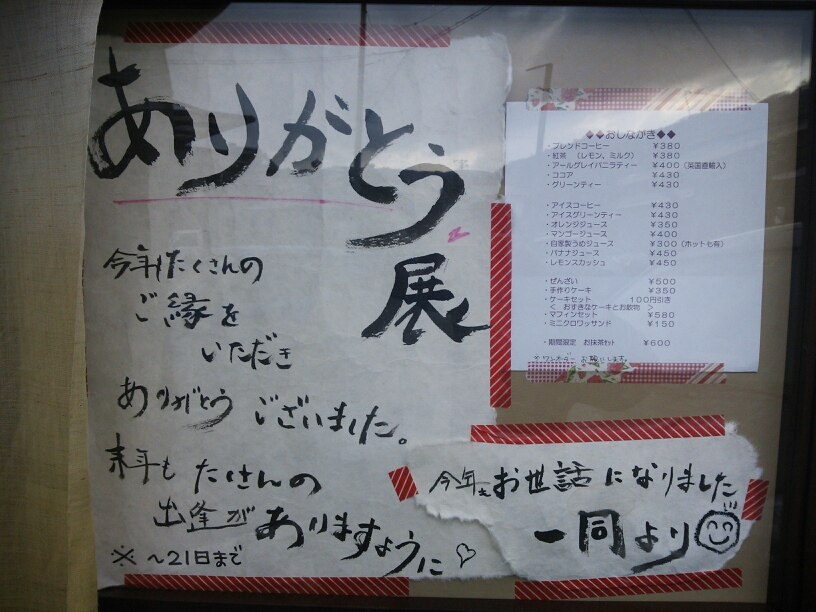 ありがとう
展
今年もたくさんの
ご縁を
いただき
ありがとうございました。
来年もたくさんの
出逢がありますように♡
※ 〜21日まで
◆◆おしながき◆◆
・ブレンドコーヒー ¥380
・紅茶 (レモン、ミルク) ¥380
・アールグレイバニラティー ¥400 (英国直輸入)
・ココア ¥430
・グリーンティー ¥430
・アイスコーヒー ¥430
・アイスグリーンティー ¥430
・オレンジジュース ¥350
・マンゴージュース ¥400
・自家製うめジュース ¥300 (ホットも有)
・バナナジュース ¥450
・レモンスカッシュ ¥450
・ぜんざい ¥500
・手作りケーキ ¥350
・ケーキセット 100円引き
< おすきなケーキとお飲物 >
・マフィンセット ¥580
・ミニクロワッサンド ¥150
・期間限定 お抹茶セット ¥600
※ワンオーダー お願いします。
今年もお世話になりました
一同より